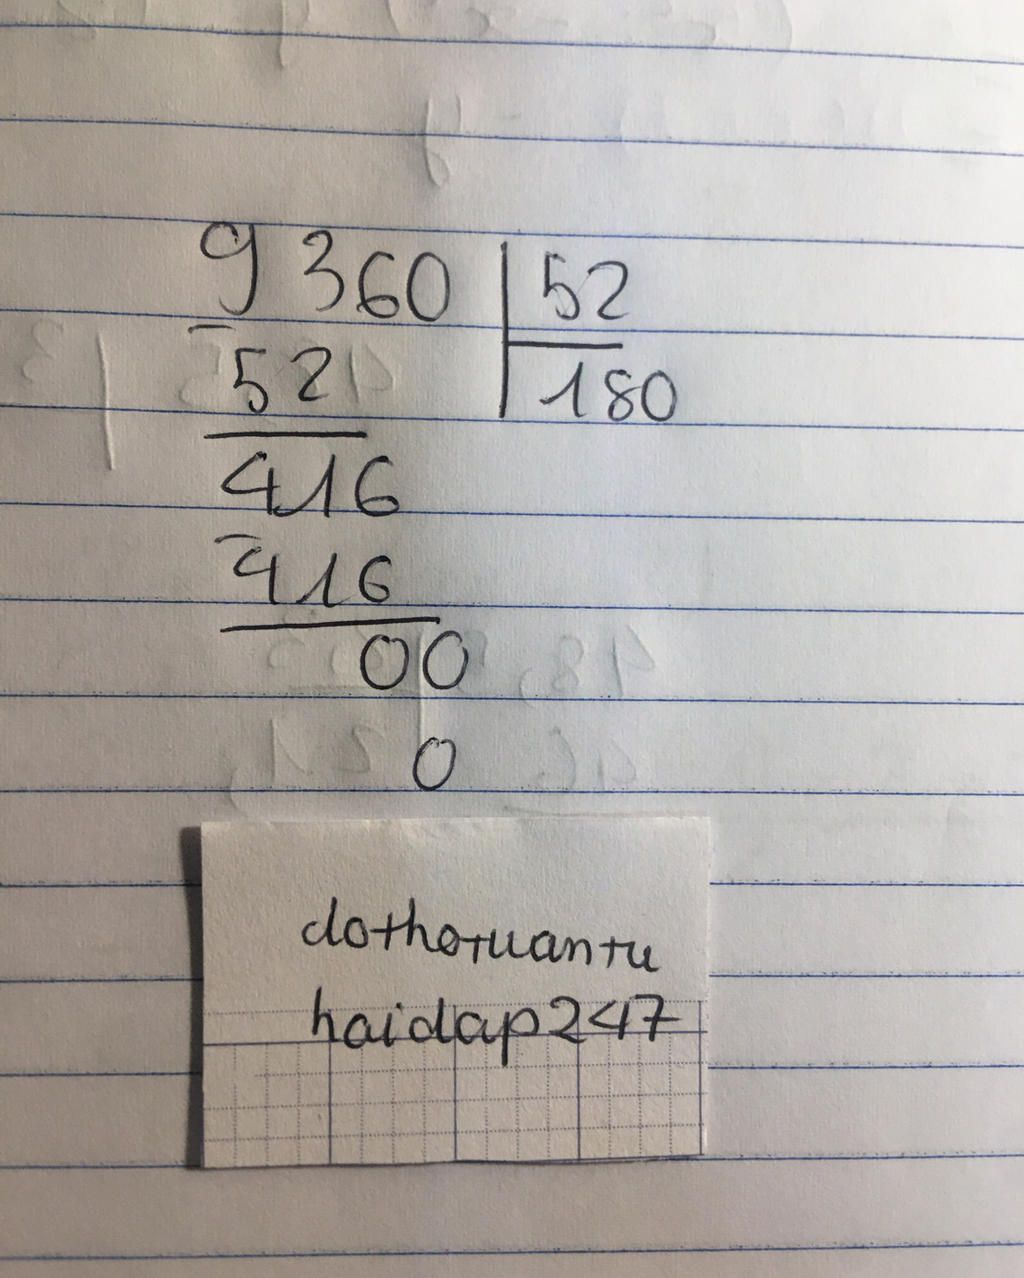 9360 | 52
- 52 | 180
416
- 416
00
0
dothotuantu
haidap247